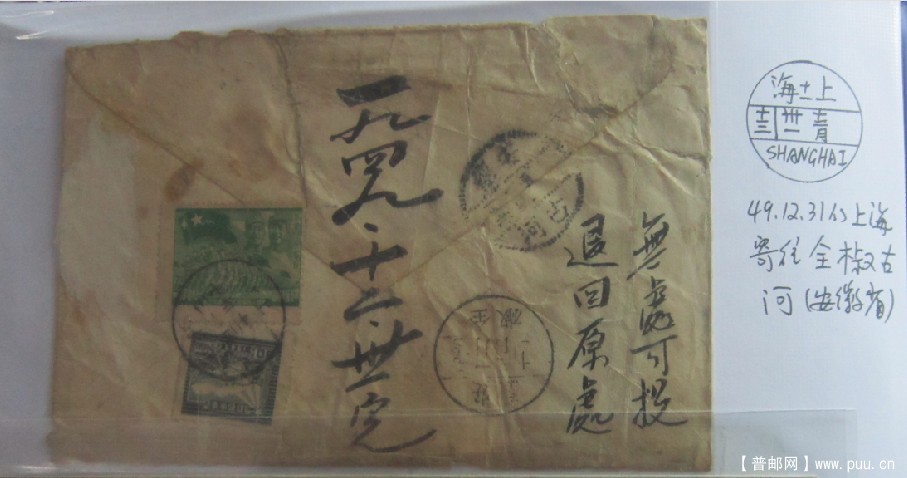 無處可投
退回原處
一九四九·十二·卅一完
椒全
上海
卅一
SHANGHAI
49.12.31从上海
寄往全椒古
河(安徽省)
【普邮网】www.puu.cn